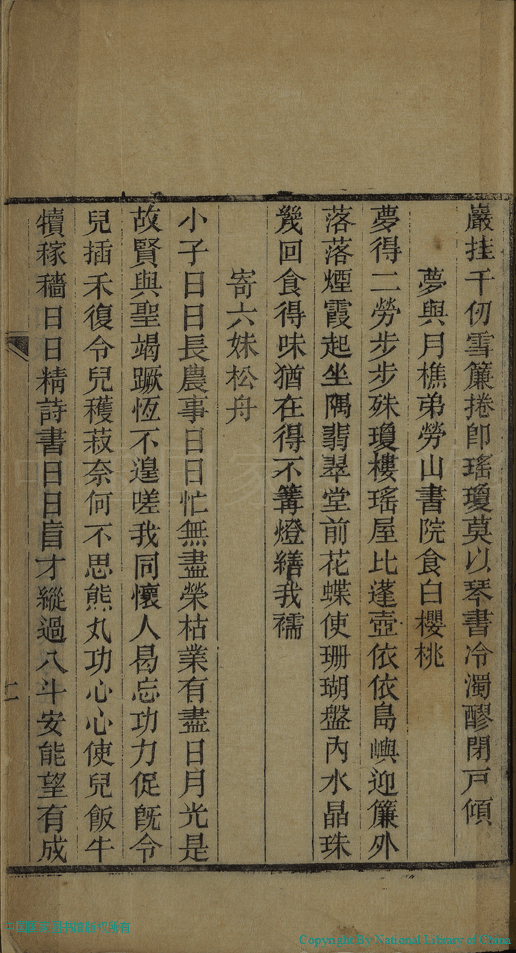 巖挂千仞雪簾捲卽瑤瓊莫以琴書冷濁醪閉戸傾
夢與月樵弟勞山書院食白櫻桃
夢得二勞步步殊瓊樓瑤屋比蓬壺依依島嶼迎簾外
落落煙霞起坐隅翡翠堂前花蝶使珊瑚盤內水晶珠
幾回食得味猶在得不篝燈繕我襦
寄六妹松舟
小子日日長農事日日忙無盡榮枯業有盡日月光是
故賢與聖竭蹶恆不遑嗟我同懷人曷忘功力促旣令
兒插禾復令兒穫菽奈何不思熊丸功心心使兒飯牛
犢稼穡日日精詩書日日盲才縱過八斗安能望有成
Copyright By National Library of China